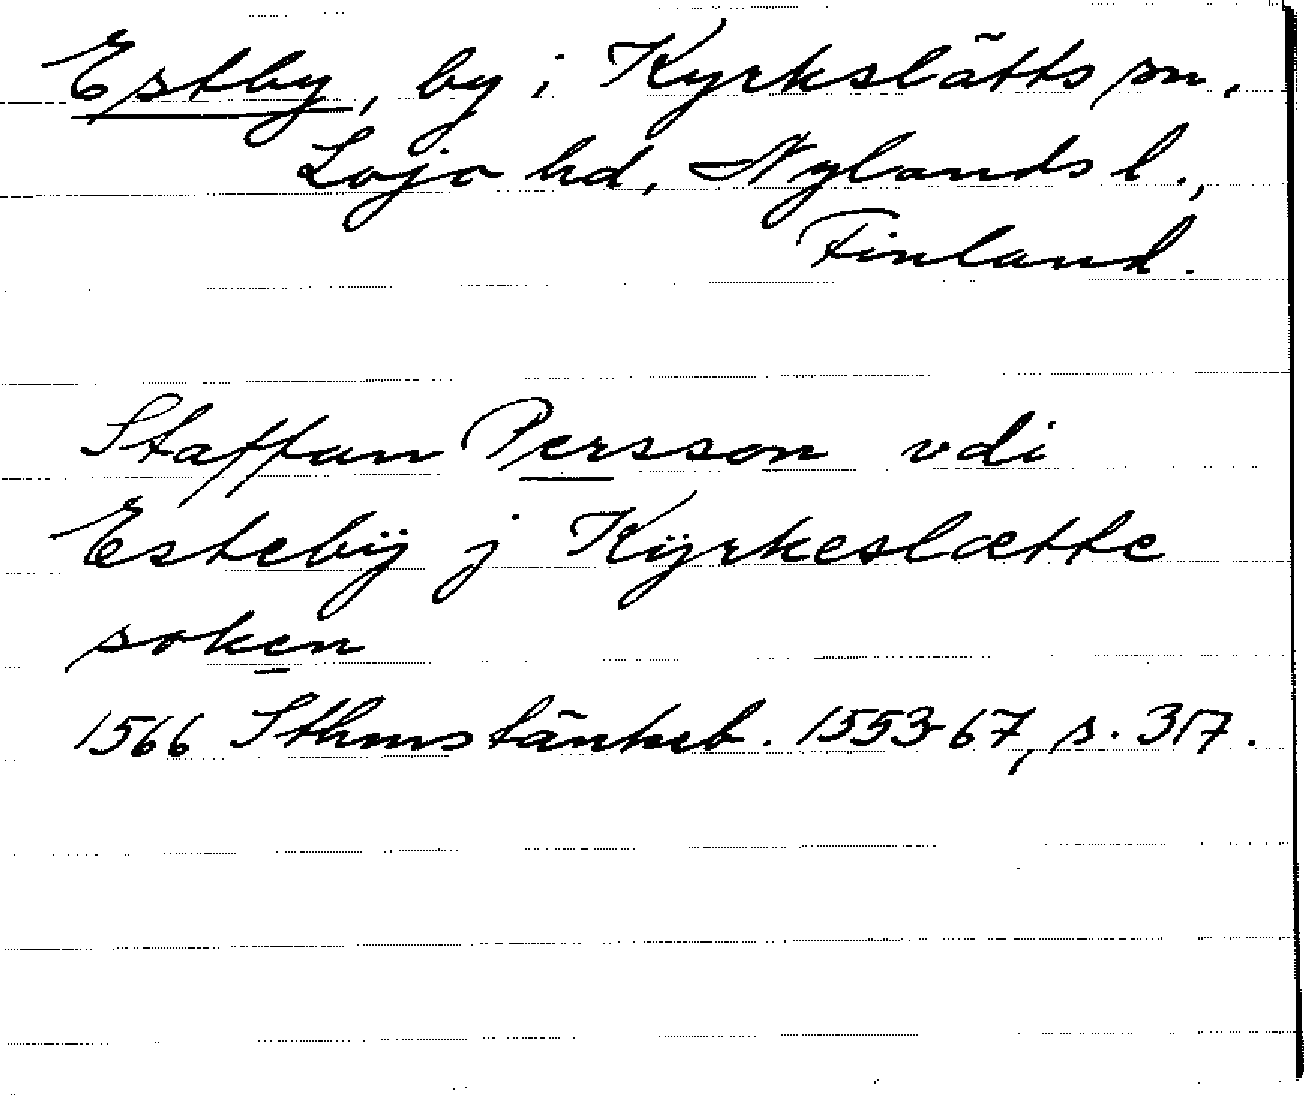 Estby, by i Kyrkslätts sn,
Lojo hd, Nylands l.,
Finland.
Staffan Persson vdi
Estebÿ j Kÿrkeslætte
soken
1566 Sthms tänkeb. 1553-67, s. 317.